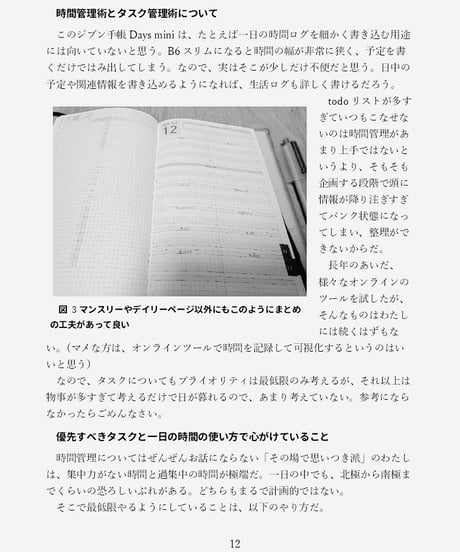 時間管理術とタスク管理術について
このジブン手帳 Days mini は、たとえば一日の時間ログを細かく書き込む用途
には向いていないと思う。B6 スリムになると時間の幅が非常に狭く、予定を書
くだけではみ出してしまう。なので、実はそこが少しだけ不便だと思う。日中の
予定や関連情報を書き込めるようになれば、生活ログも詳しく書けるだろう。
todo リストが多す
ぎていつもこなせな
いのは時間管理があ
まり上手ではないと
いうより、そもそも
企画する段階で頭に
情報が降り注ぎすぎ
てパンク状態になっ
てしまい、整理がで
きないからだ。
長年のあいだ、
様々なオンラインの
ツールを試したが、
そんなものはわたし
には続くはずもな
12
図 3 マンスリーやデイリーページ以外にもこのようにまとめ
の工夫があって良い
い。(マメな方は、オンラインツールで時間を記録して可視化するというのはい
いと思う)
なので、タスクについてもプライオリティは最低限のみ考えるが、それ以上は
物事が多すぎて考えるだけで日が暮れるので、あまり考えていない。参考になら
なかったらごめんなさい。
優先すべきタスクと一日の時間の使い方で心がけていること
時間管理についてはぜんぜんお話にならない「その場で思いつき派」のわたし
は、集中力がない時間と過集中の時間が極端だ。一日の中でも、北極から南極ま
でくらいの恐ろしいぶれがある。どちらもまるで計画的ではない。
そこで最低限やるようにしていることは、以下のやり方だ。
12